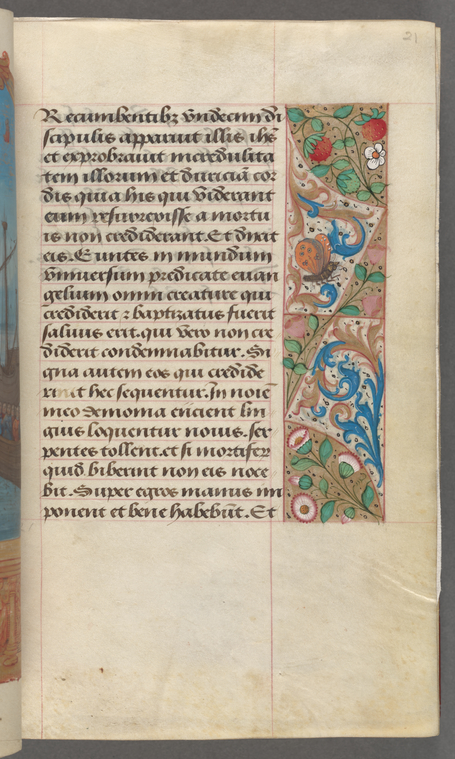 21
Recumbentibz vndecim di
scipulis apparuit illis ihs
et exprobrauit incredulita
tem illorum et duriciā cor
dis quia his qui viderant
eum resurrexisse a mortu
is non crediderant. Et dixit
eis. Euntes in mundum
vniuersum predicate euan
gelium omni creature qui
crediderit ⁊ baptizatus fuerit
saluus erit. qui vero non cre
diderit condemnabitur. Si
gna autem eos qui credide
rint hec sequentur. In noīe
meo demonia eiicient lin
guis loquentur nouis. ser
pentes tollent. et si mortiferū
quid biberint non eis noce
bit. Super egros manus im
ponent et bene habebūt. Et